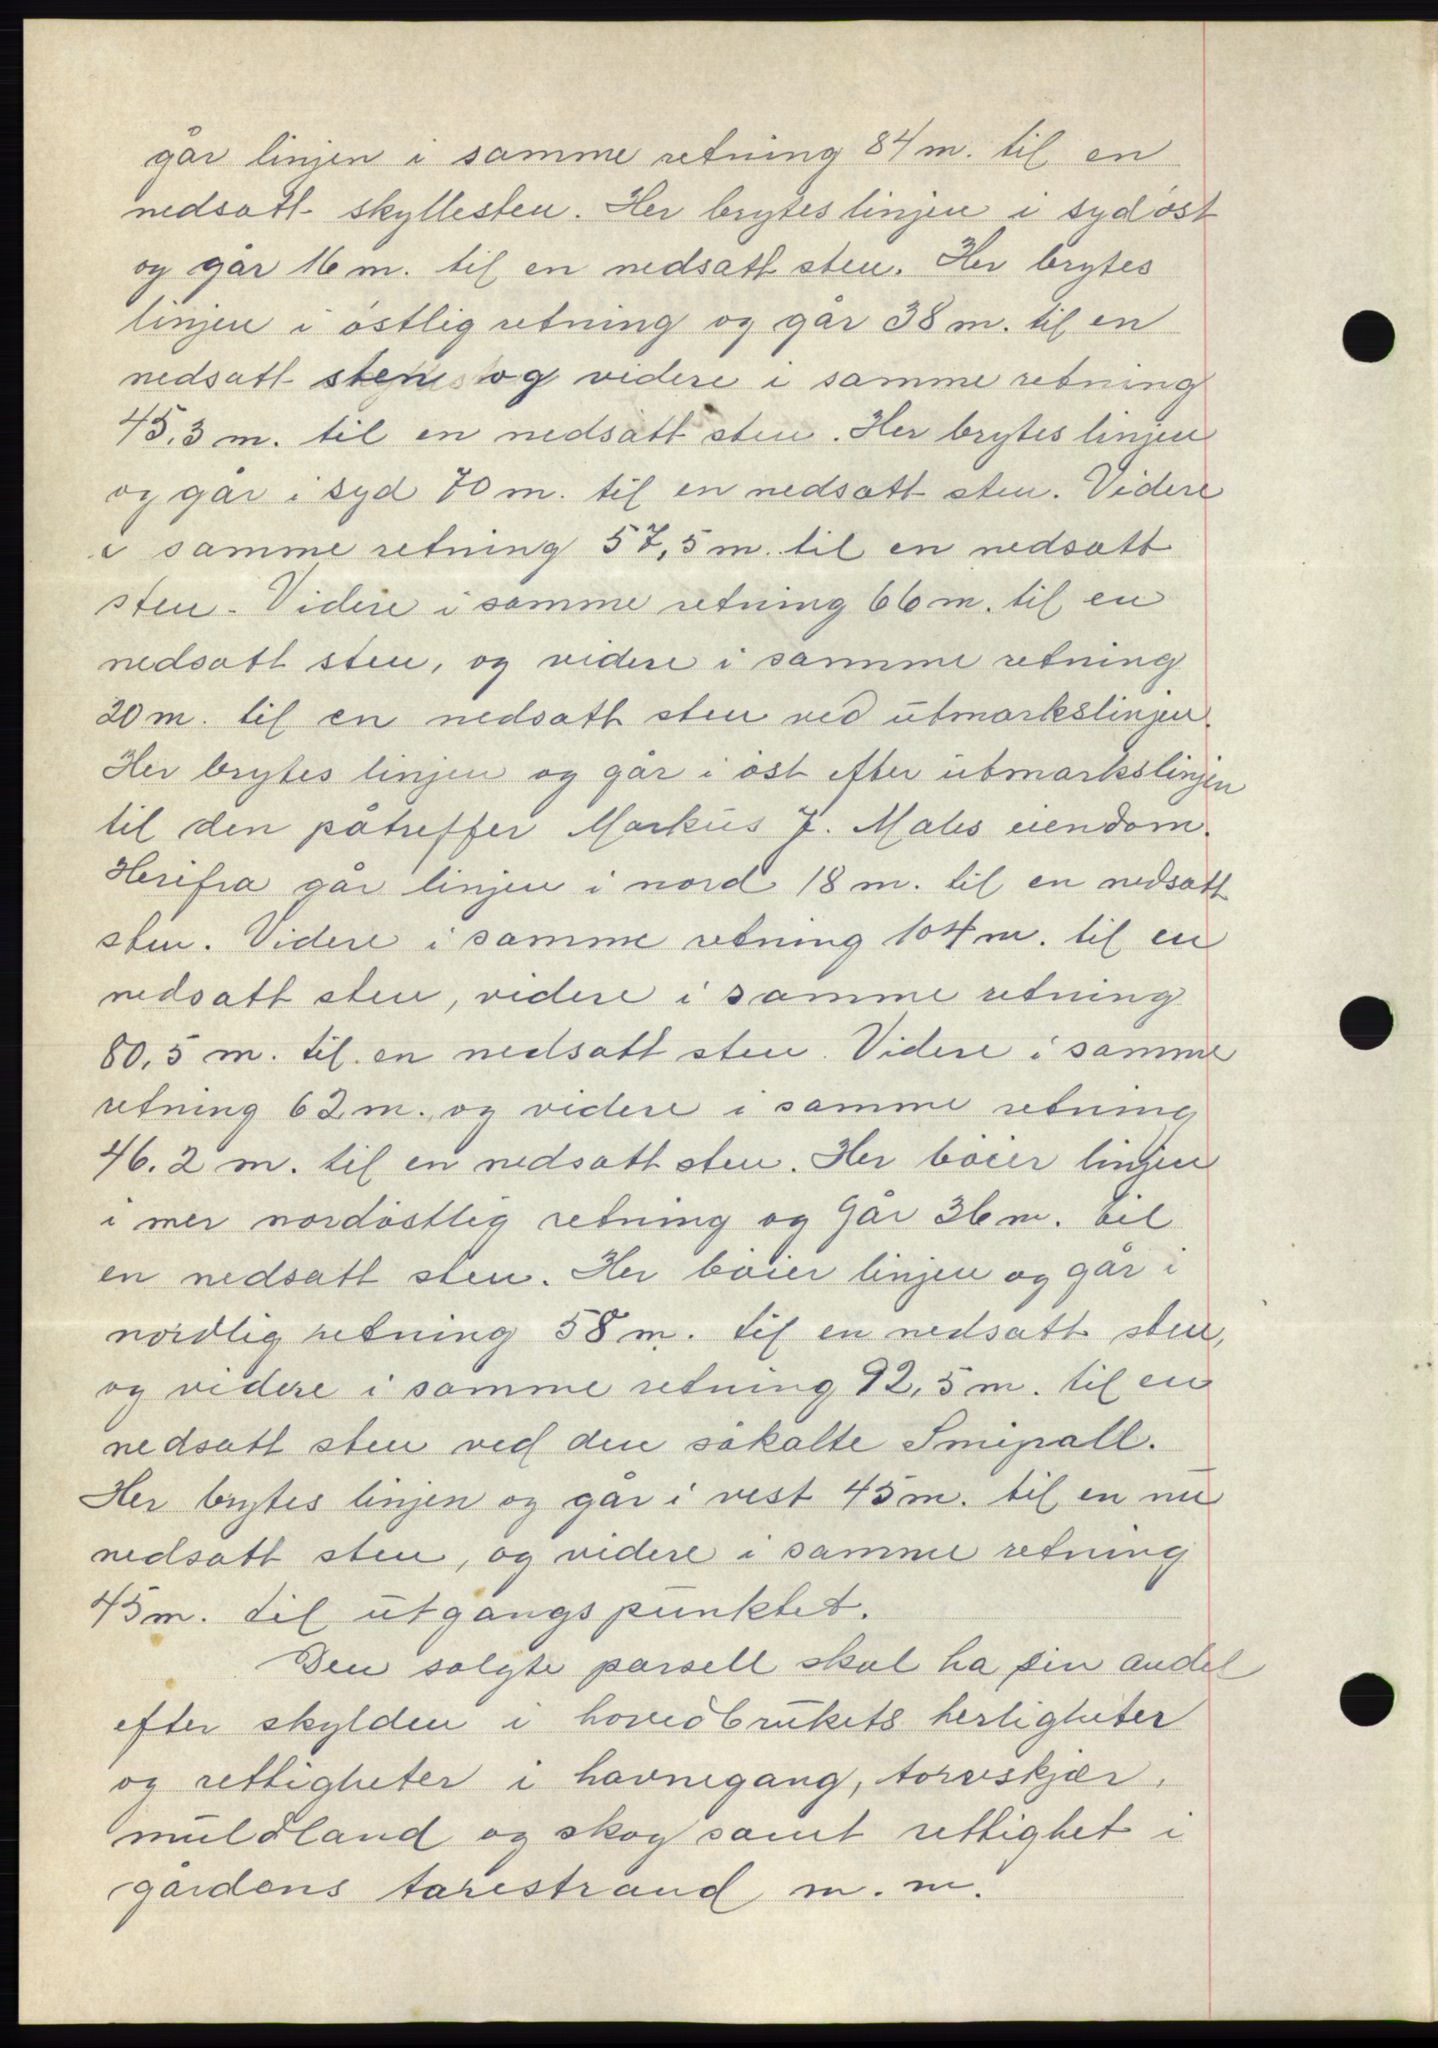 går linjen i samme retning 84 m. til en
nedsatt skyllesten. Her brytes linjen i sydøst
og går 16 m. til en nedsatt sten. Her brytes
linjen i østlig retning og går 38 m. til en
nedsatt sten og videre i samme retning
45,3 m. til en nedsatt sten. Her brytes linjen
og går i syd 70 m. til en nedsatt sten. Videre
i samme retning 57,5 m. til en nedsatt
sten. Videre i samme retning 66 m. til en
nedsatt sten, og videre i samme retning
20 m. til en nedsatt sten ved utmarkslinjen.
Her brytes linjen og går i øst efter utmarkslinjen
til den påtreffer Markus J. Males eiendom.
Herifra går linjen i nord 18 m. til en nedsatt
sten. Videre i samme retning 104 m. til en
nedsatt sten, videre i samme retning
80,5 m. til en nedsatt sten. Videre i samme
retning 62 m. og videre i samme retning
46.2 m. til en nedsatt sten. Her bøier linjen
i mer nordøstlig retning og går 36 m. til
en nedsatt sten. Her bøier linjen og går i
nordlig retning 58 m. til en nedsatt sten,
og videre i samme retning 92,5 m. til en
nedsatt sten ved den såkalte Smipall.
Her brytes linjen og går i vest 45 m. til en nu
nedsatt sten, og videre i samme retning
45 m. til utgangspunktet.
Den solgte parsell skal ha sin andel
efter skylden i hovedbrukets herligheter
og rettigheter i havnegang, torvskjær,
muldland og skog samt rettighet i
gårdens tarestrand m. m.